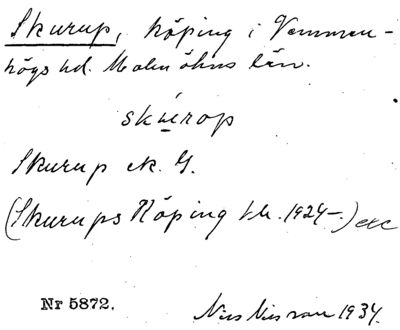 Skurup, köping i Vemmen-
högs hd. Malmöhus län.
skúrop
Skurup ek. G.
(Skurups Köping bl. 1924-.) etc
Nr 5872.
Nils Nilsson 1934.